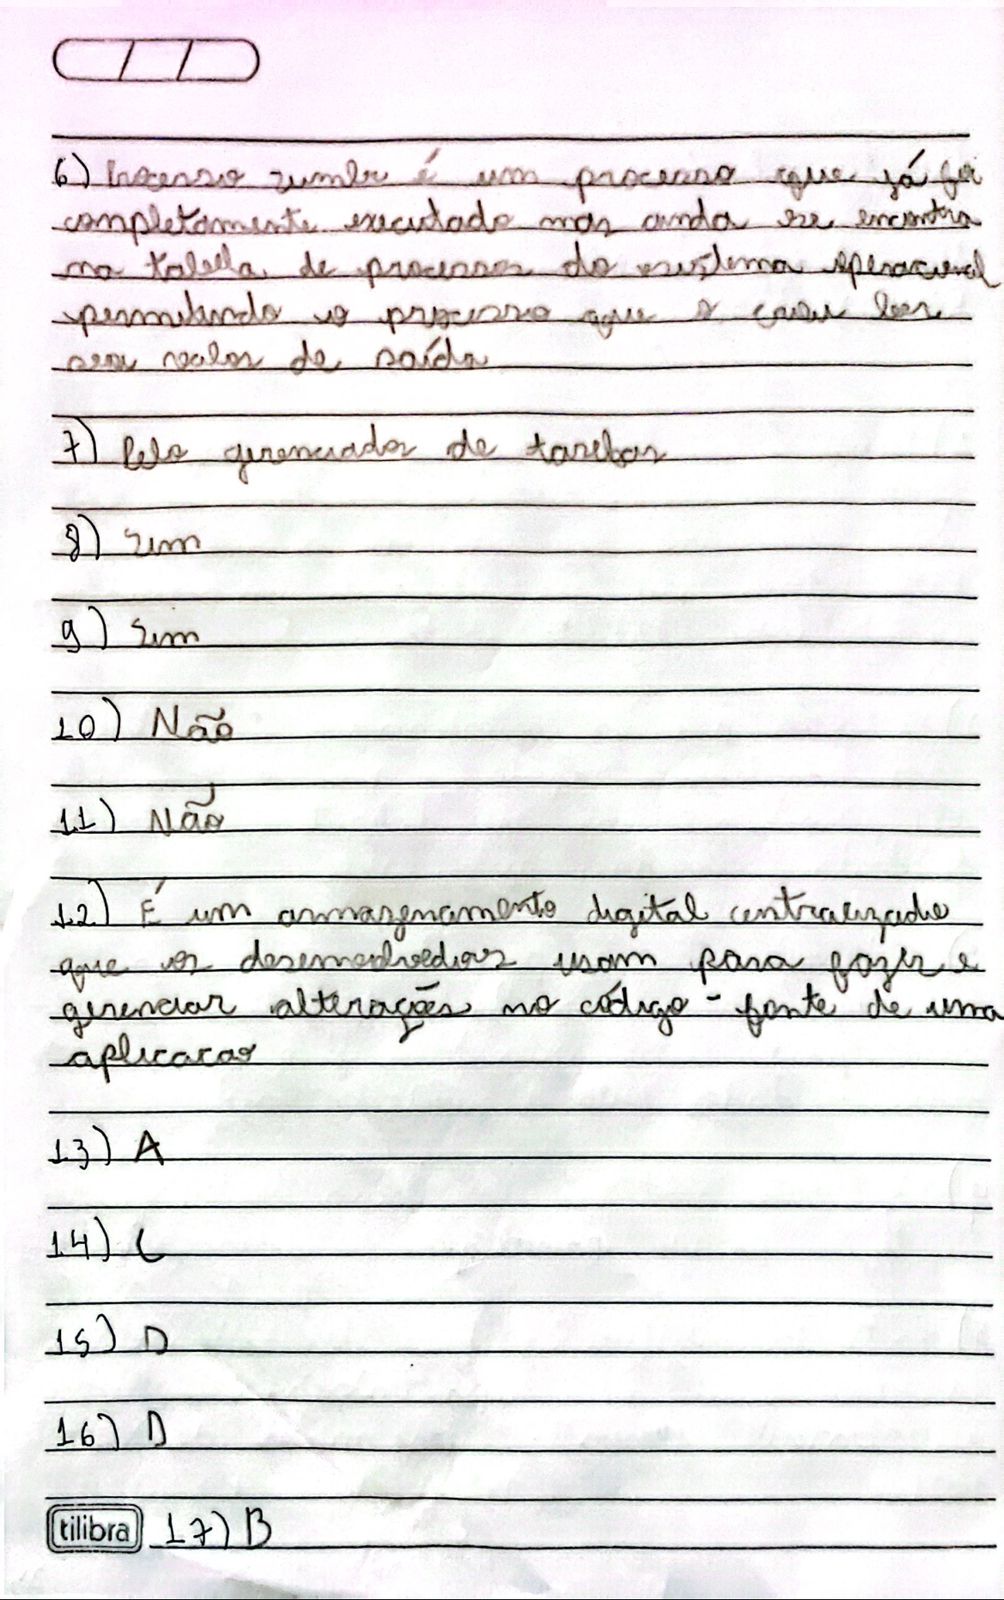 6) Processo zumbi é um processo que já foi
completamente executado mas ainda se encontra
na tabela de processos do sistema operacional
permitindo o processo que o criou ler
seu valor de saída
7) Pelo gerenciador de tarefas
8) Sim
9) Sim
10) Não
11) Não
12) É um armazenamento digital centralizado
que os desenvolvedores usam para fazer e
gerenciar alterações no código-fonte de uma
aplicacao
13) A
14) C
15) D
16) D
tilibra 17) B